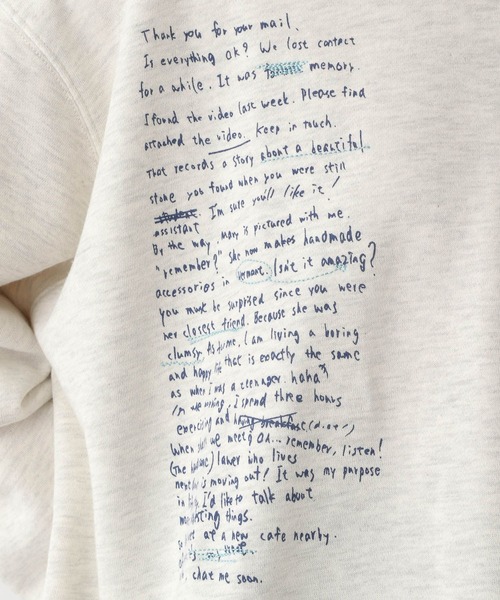 Thank you for your mail.
Is everything OK? We lost contact
for a while. It was memory.
I found the video last week. Please find
attached the video. Keep in touch.
That records a story about a beautiful
stone you found when you were still
assistant I'm sure you'll like it!
By the way, Mary is pictured with me.
"remember?" She now makes handmade
accessories in vermont. Isn't it amazing?
you must be surprised since you were
her closest friend. Because she was
clumsy. As for me, I am living a boring
and happy life that is exactly the same
as when I was a teenager. haha
spend three hours
exercising and
When shall we meet? Oh... remember, listen!
lives
is moving out! It was my purpose
in I'd like to talk about
things.
at a new cafe nearby.
chat me soon.